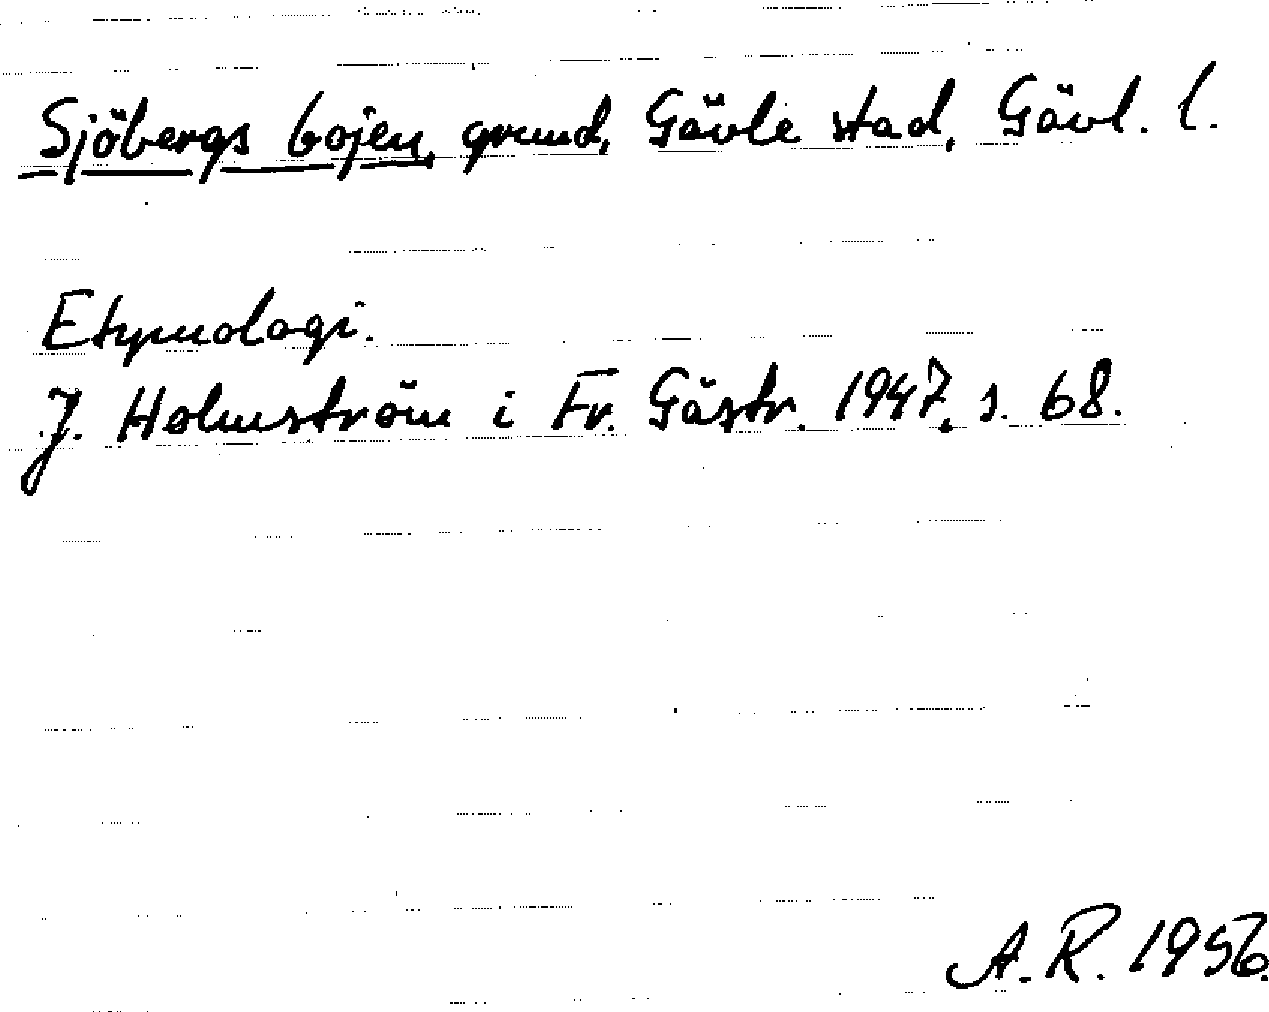 Sjöbergs bojen, grund, Gävle stad, Gävl. l.
Etymologi.
J. Holmström i Fr. Gästr. 1947, s. 68.
A.R. 1956.